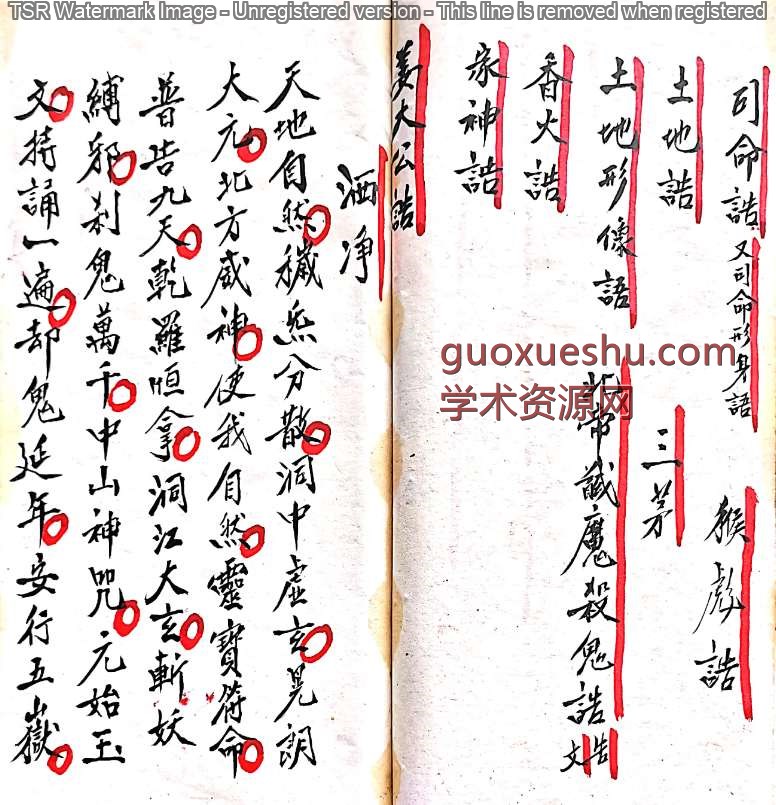 TSR Watermark Image - Unregistered version - This line is removed when registered
司命誥 又司命形身語
猴彪誥
土地誥
三茅
土地形像語
北帝誠魔殺鬼誥 文告
香火誥
家神誥
姜大公誥
洒净
天地自然穢炁分散洞中虚玄晃朗
大元北方威神使我自然靈寶符命
普告九天乾羅恒拿洞江大玄斬妖
縛邪刹鬼萬千中山神咒元始玉
文持誦一遍却鬼延年安行五嶽
guoxueshu.com
学术资源网